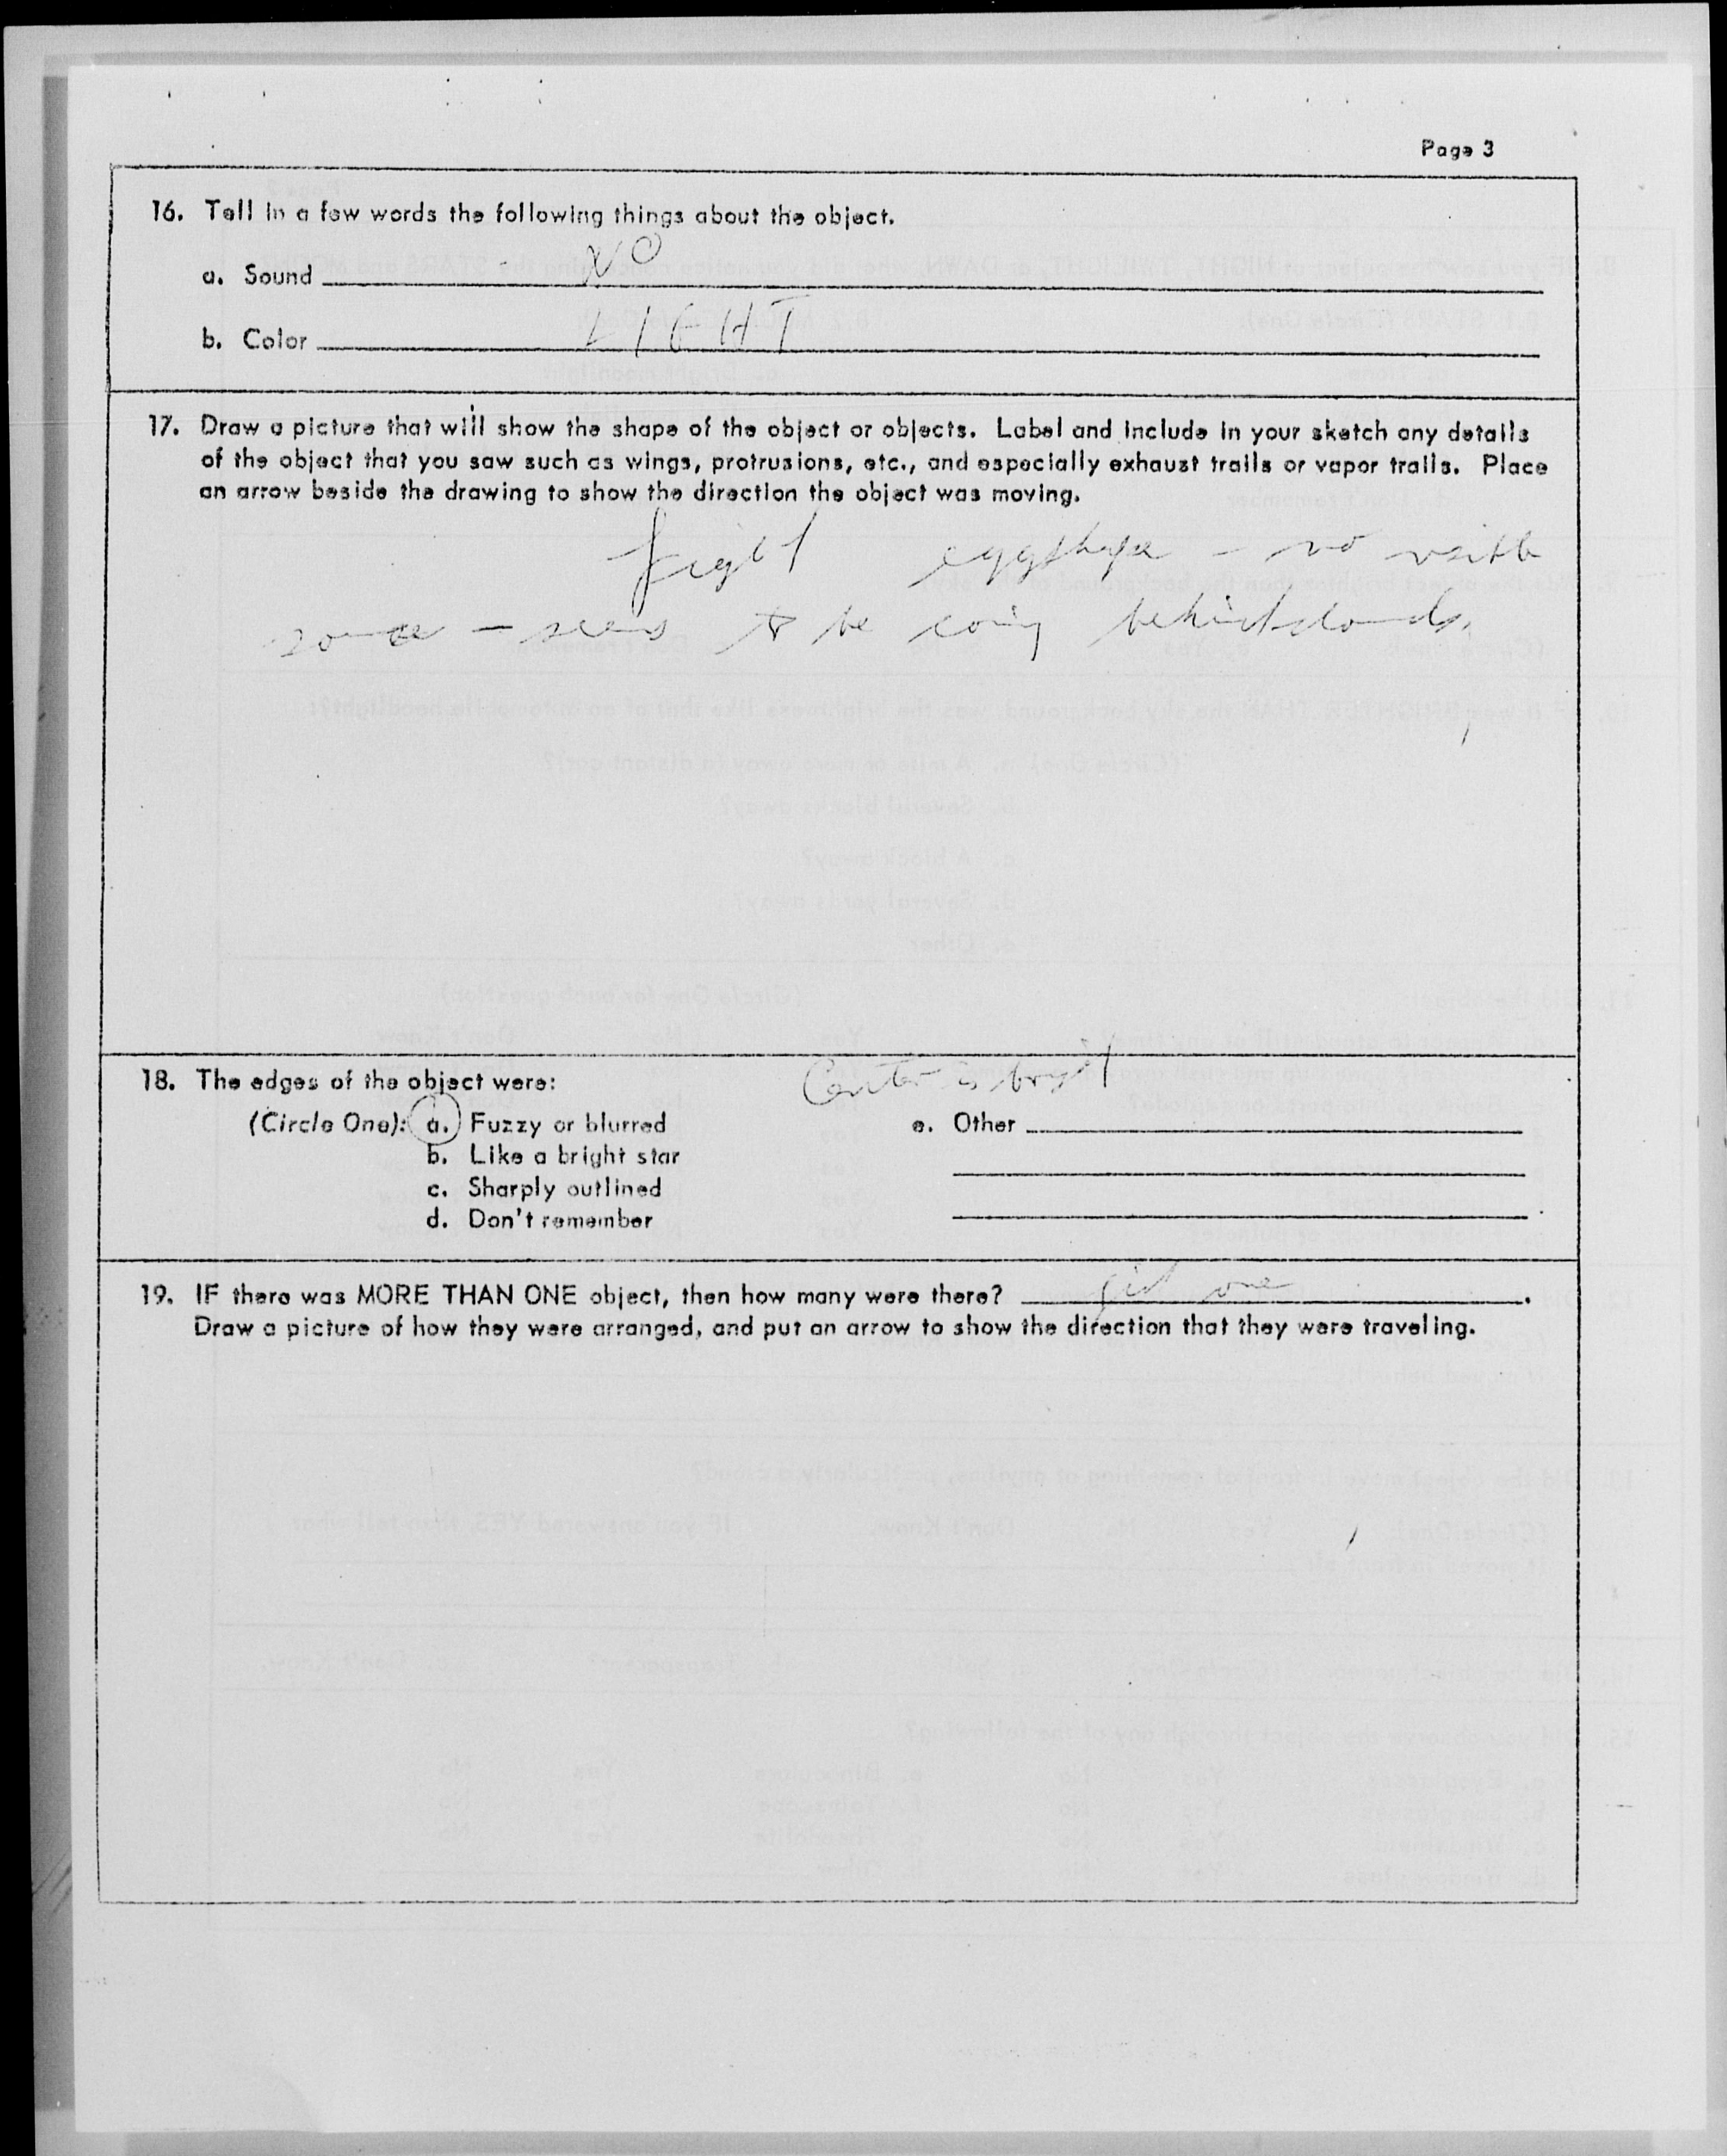 Page 3
16. Tell in a few words the following things about the object.
a. Sound NO
b. Color LIGHT
17. Draw a picture that will show the shape of the object or objects. Label and include in your sketch any details
of the object that you saw such as wings, protrusions, etc., and especially exhaust trails or vapor trails. Place
an arrow beside the drawing to show the direction the object was moving.
eggshape - no
- seems to be behind clouds.
18. The edges of the object were:
Center is bright
(Circle One): a. Fuzzy or blurred
b. Like a bright star
c. Sharply outlined
d. Don't remember
e. Other
19. IF there was MORE THAN ONE object, then how many were there? one.
Draw a picture of how they were arranged, and put an arrow to show the direction that they were traveling.